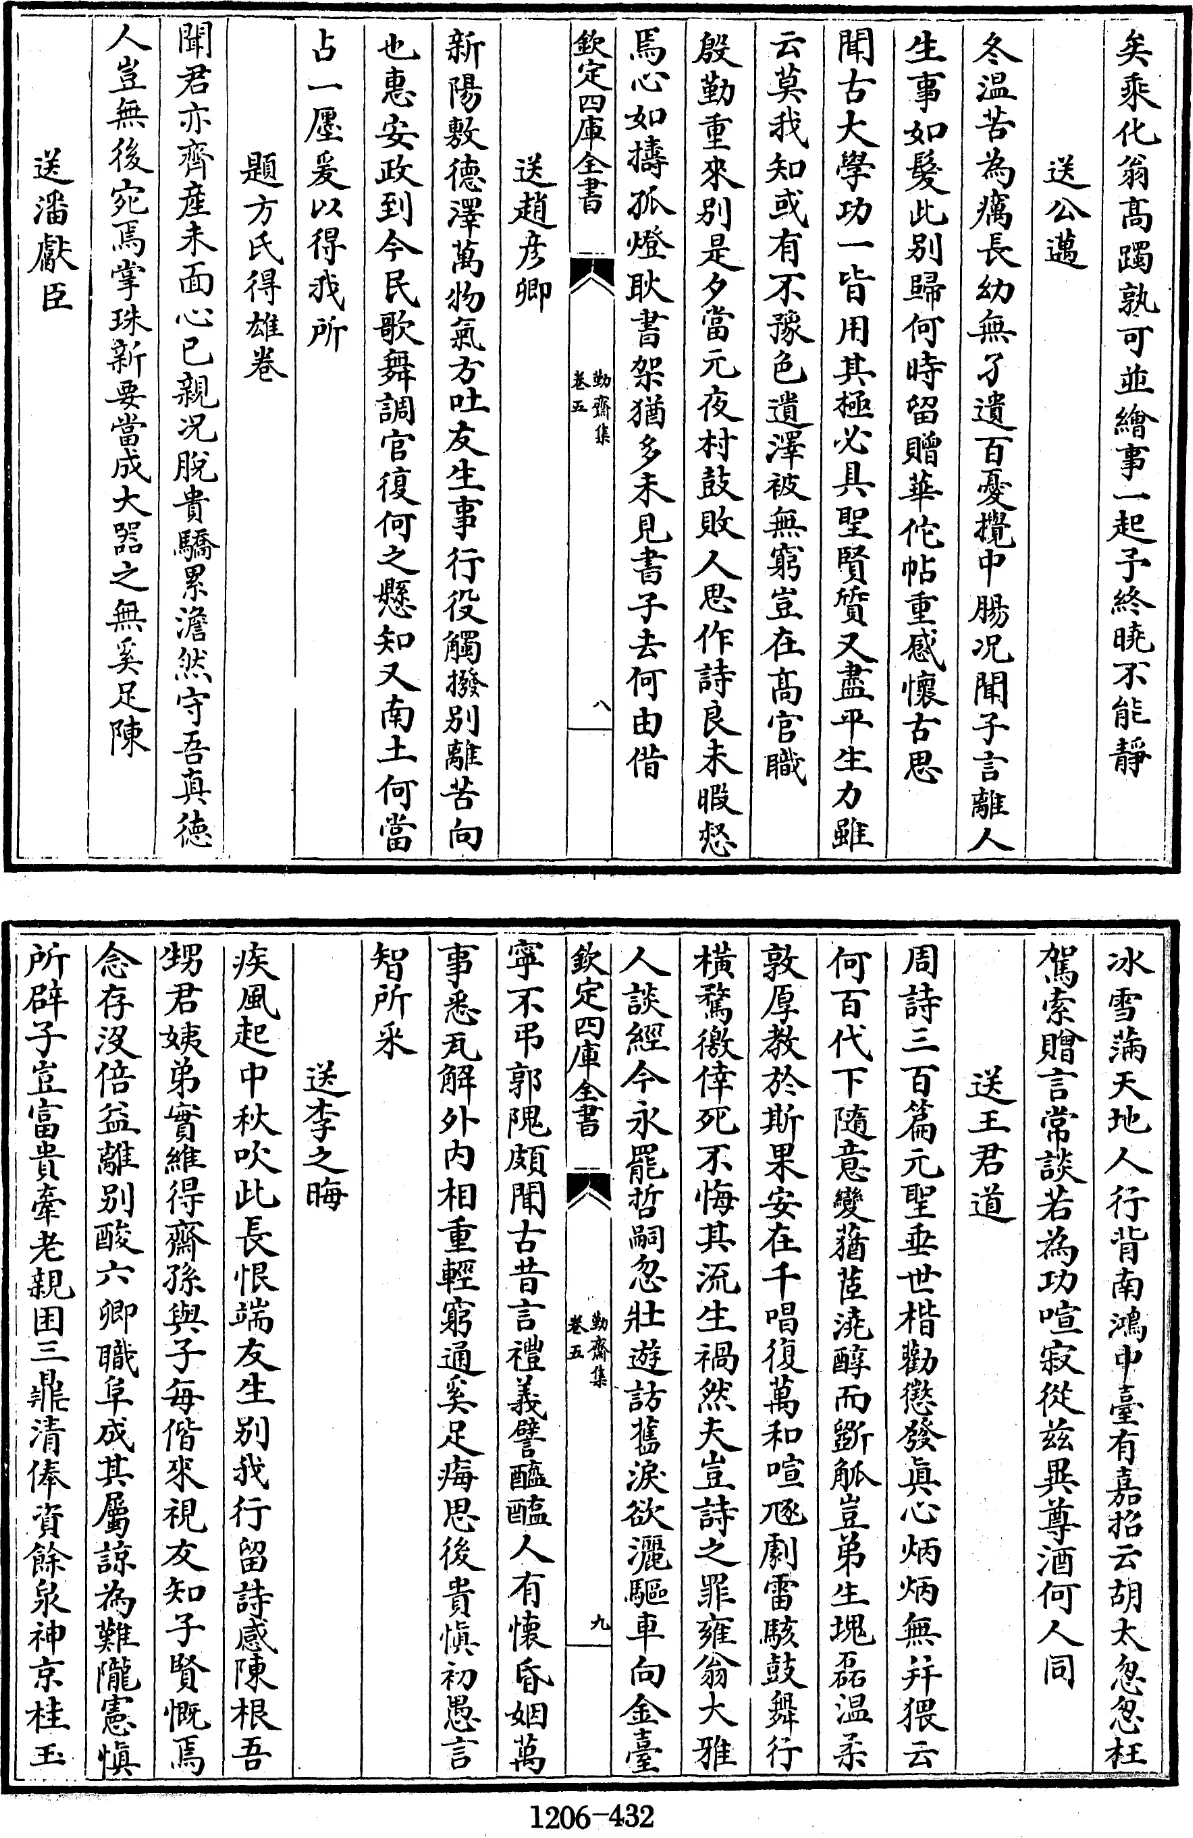 矣乘化翁高躅孰可並繪事一起予終曉不能靜
送公邁
冬溫苦為癘長幼無孑遺百憂攪中腸况聞子言離人
生事如髮此別歸何時留贈華佗帖重感懷古思
聞古大學功一皆用其極必具聖賢質又盡平生力雖
云莫我知或有不豫色遺澤被無窮豈在高官職
殷勤重來別是夕當元夜村鼓敗人思作詩良未暇愁
焉心如擣孤燈耿書架猶多未見書子去何由借
欽定四庫全書
勤齋集
卷五
八
送趙彥卿
新陽敷德澤萬物氣方吐友生事行役觸撥別離苦向
也惠安政到今民歌舞調官復何之懸知又南土何當
占一廛爰以得我所
題方氏得雄卷
聞君亦齊産未面心已親况脫貴驕累澹然守吾真德
人豈無後宛焉掌珠新要當成大器之無奚足陳
送潘獻臣
冰雪滿天地人行背南鴻中臺有嘉招云胡太怱怱枉
駕索贈言常談若為功喧寂從兹異尊酒何人同
送王君道
周詩三百篇元聖垂世楷勸懲發真心炳炳無弁猥云
何百代下隨意變蕕茝澆醇而斵觚豈弟生塊磊溫柔
敦厚教於斯果安在千唱復萬和喧豗劇雷駭鼓舞行
橫騖徼倖死不悔其流生禍然夫豈詩之罪雍翁大雅
人談經今永罷哲嗣忽壯遊訪舊淚欲灑驅車向金臺
欽定四庫全書
勤齋集
卷五
九
寧不弔郭隗頗聞古昔言禮義譬醯醢人有懷昏姻萬
事悉瓦解外内相重輕窮通奚足痗思後貴慎初愚言
智所采
送李之晦
疾風起中秋吹此長恨端友生別我行留詩感陳根吾
甥君姨弟實維得齋孫與子每偕來視友知子賢慨焉
念存沒倍益離別酸六卿職阜成其屬諒為難隴憲慎
所辟子豈富貴牽老親困三鼎清俸資餘泉神京桂玉
1206-432